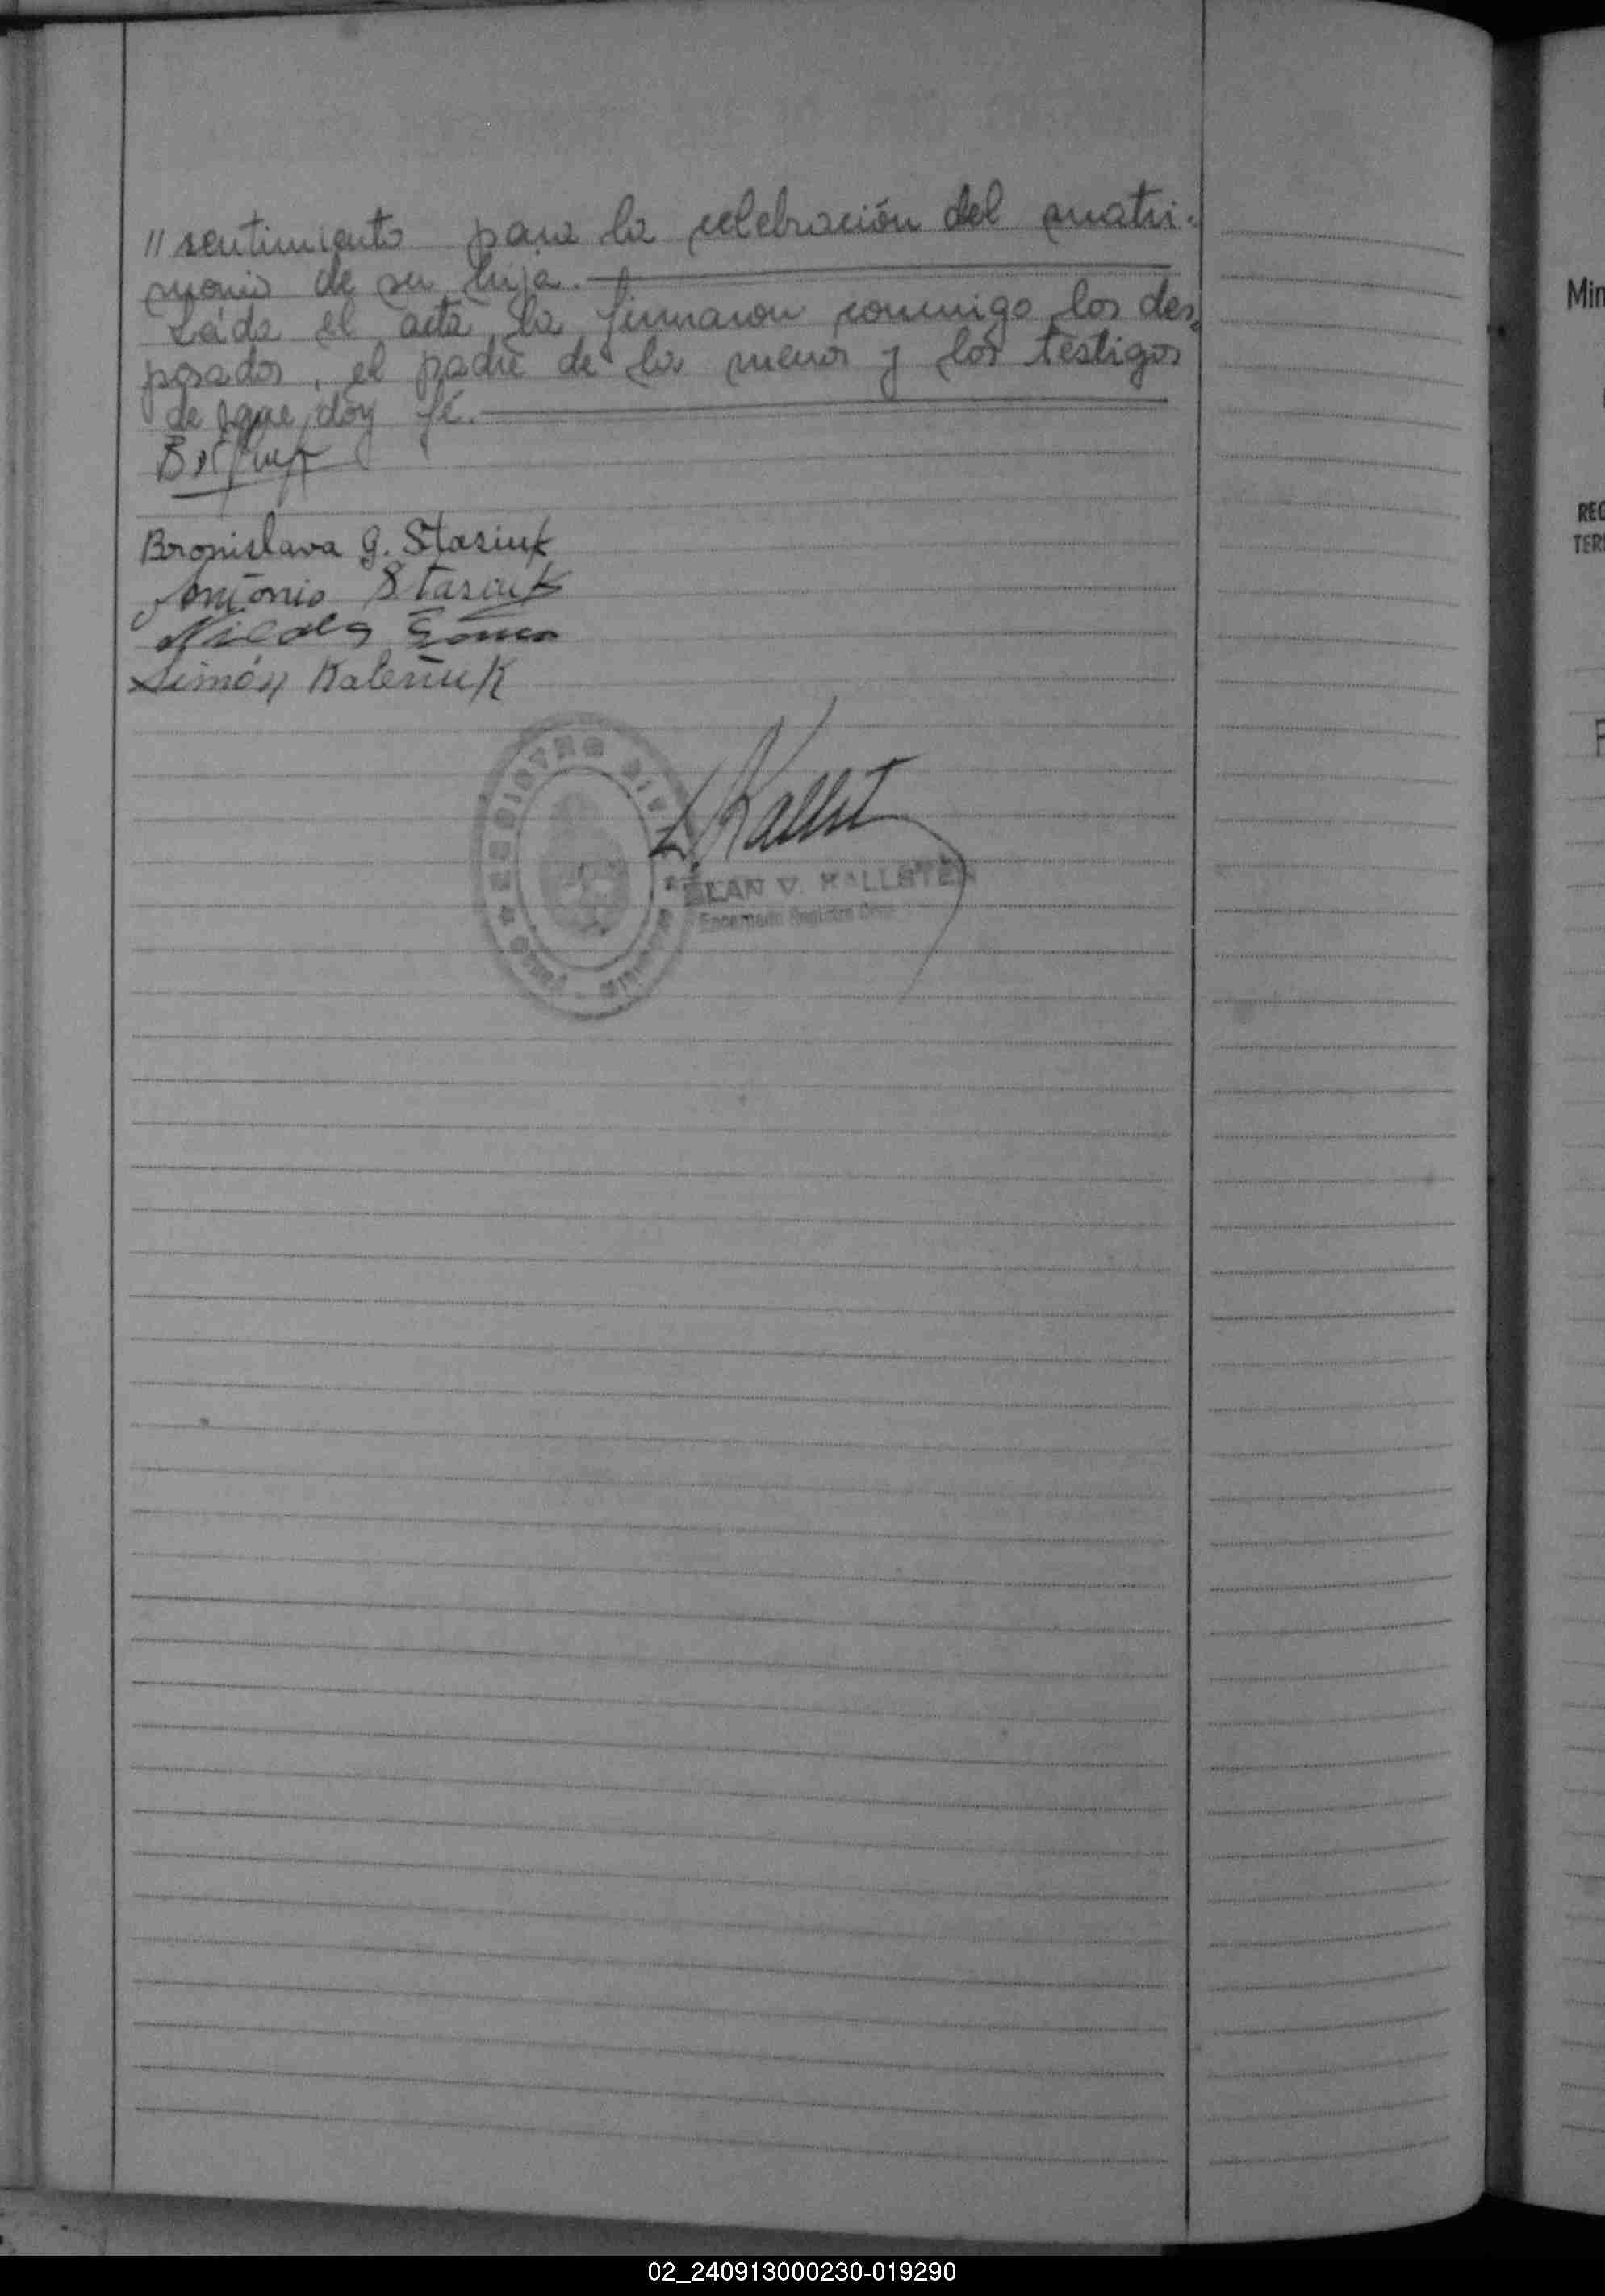 "sentimiento para la celebración del matri-
monio de su hija.
Leída el acta la firmaron conmigo los des-
posados, el padre de la menor y los testigos
de que doy fé.
Bronislava G. Stasiuk
Antonio Stasiuk
Nilda
Simón Kaleñuk
REGISTRO CIVIL
L. Kallst
ELAN V. KALLSTEN
Encargado Registro Civil
Min
REG
TER
02_240913000230-019290